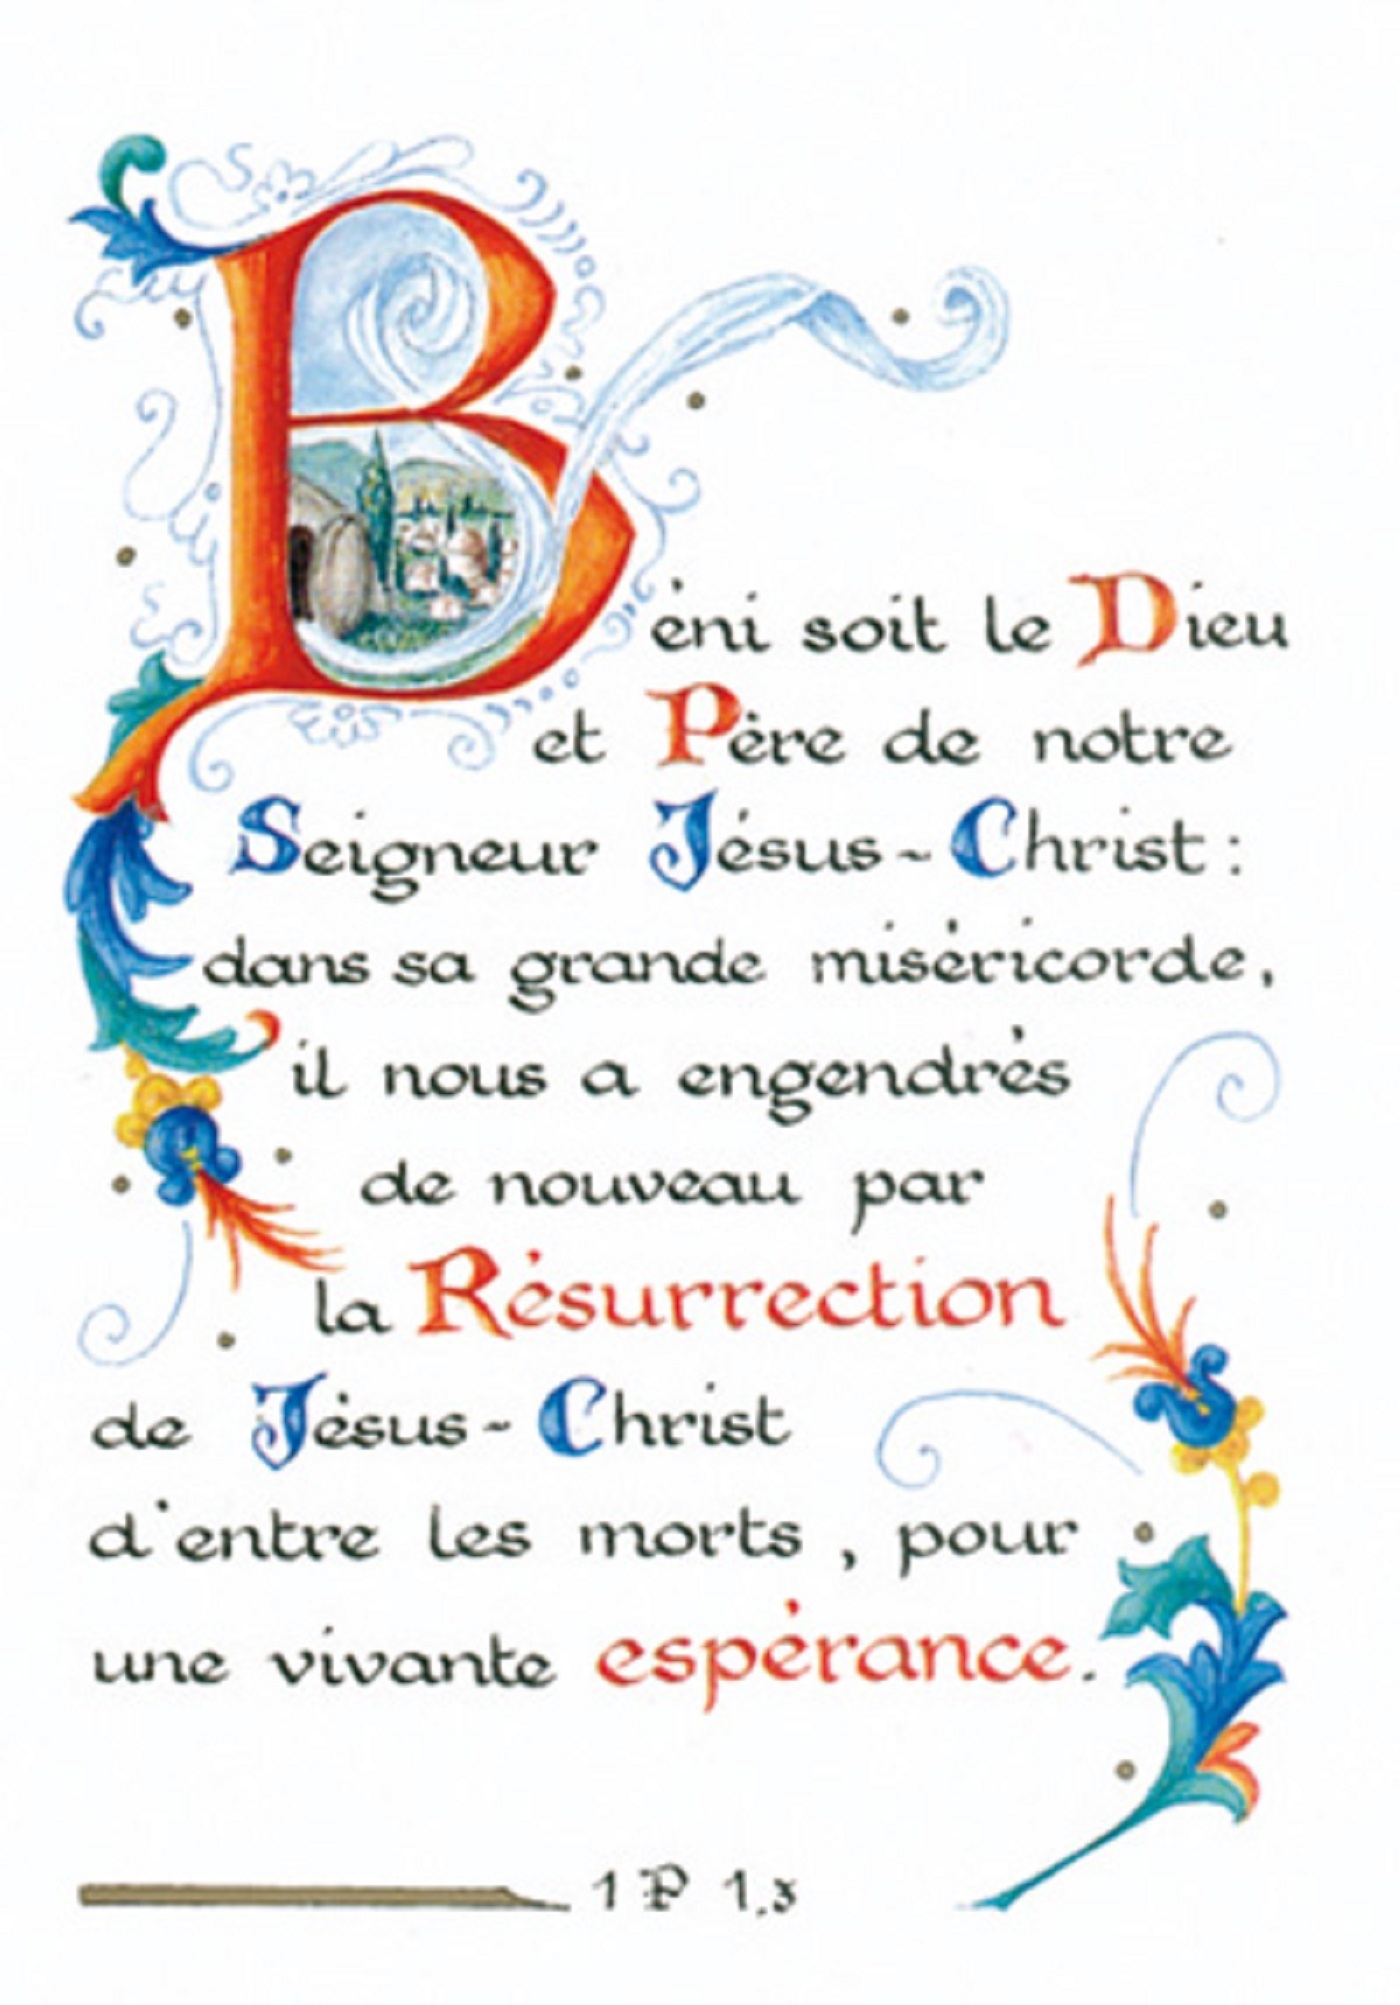 Béni soit le Dieu
et Père de notre
Seigneur Jésus-Christ :
dans sa grande miséricorde,
il nous a engendrés
de nouveau par
la Résurrection
de Jésus-Christ
d'entre les morts, pour
une vivante espérance.
1 P 1,3